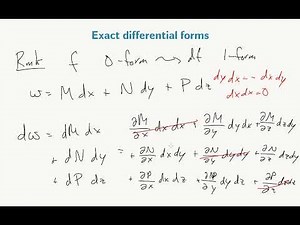 Exact differential forms
Rmk f 0-form ⇝ df 1-form
ω = M dx + N dy + P dz dy dx = - dx dy
dx dx = 0
dω = dM dx = ∂M/∂x dx dx + ∂M/∂y dy dx + ∂M/∂z dz dx
+ dN dy + ∂N/∂x dx dy + ∂N/∂y dy dy + ∂N/∂z dz dy
+ dP dz + ∂P/∂x dx dz + ∂P/∂y dy dz + ∂P/∂z dz dz